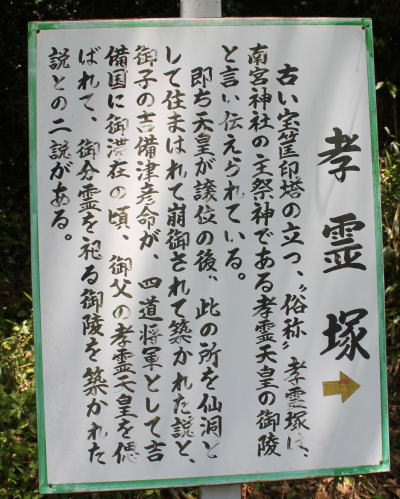 孝霊塚
古い宝筐印塔の立つ、〝俗称〟孝霊塚は、
南宮神社の主祭神である孝霊天皇の御陵
と言い伝えられている。
即ち天皇が譲位の後、此の所を仙洞と
して住まはれて崩御されて築かれた説と、
御子の吉備津彦命が、四道将軍として吉
備国に御滞在の頃、御父の孝霊天皇を偲
ばれて、御分霊を祀る御陵を築かれた
説との二説がある。